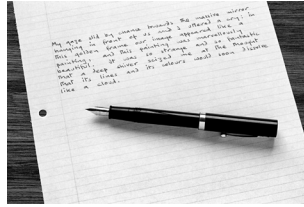 My gaze fell by chance towards the massive mirror
hanging in front of us and I uttered a cry: in
this golden frame our image appeared like a
painting, and this painting was marvellously
beautiful. It was so strange and so fantastic
that a deep shiver seized me at the thought
that its lines and its colours would soon dissolve
like a cloud.